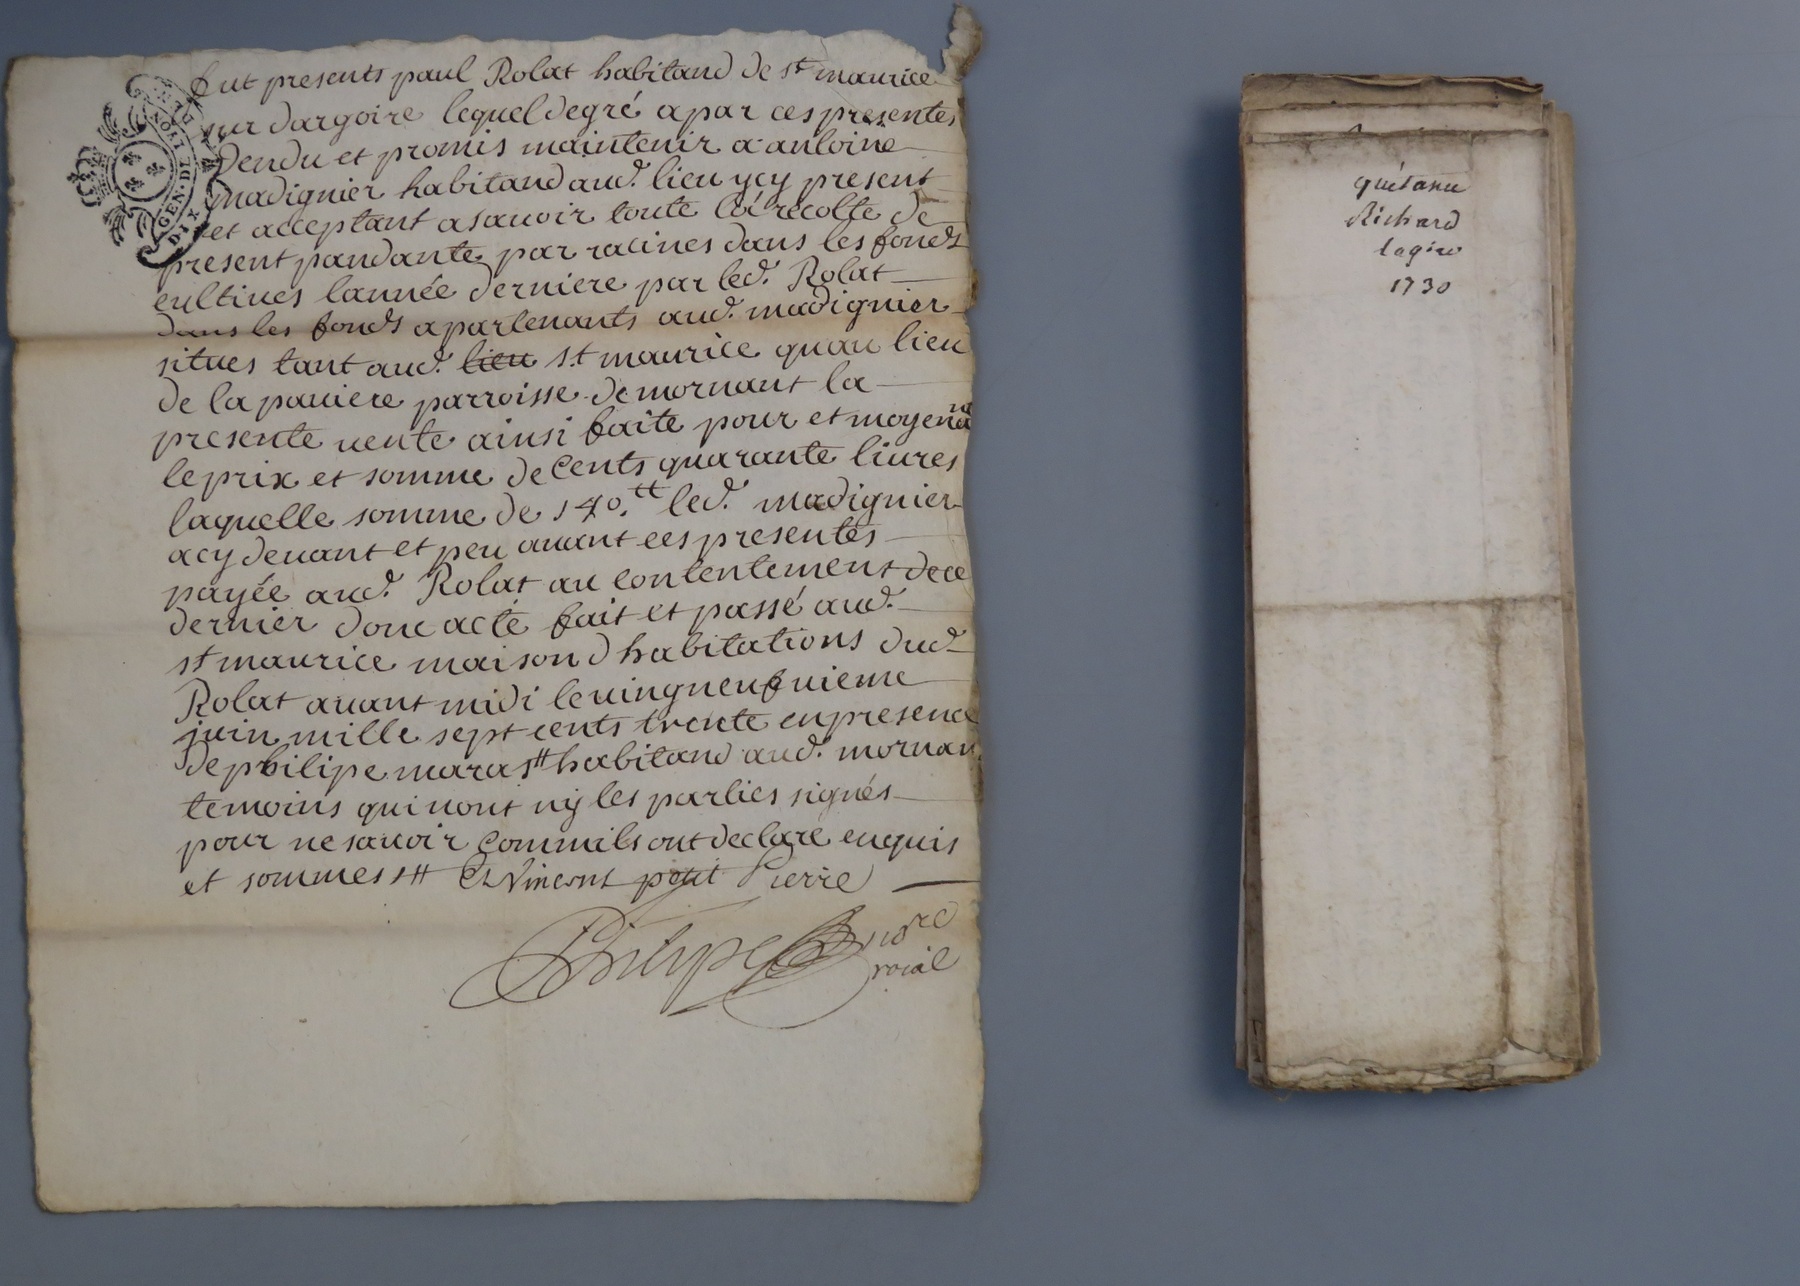 fut presents paul Rolat habitand de st maurice
sur dargoire lequel de gré a par ces presentes
vendu et promis maintenir a antoine
madignier habitand aud. lieu ycy present
et acceptant a sauoir toute la récolte de
present pandante par racines dans les fonds
cultiues lannée derniere par led. Rolat
dans les fonds apartenants aud. madignier
situes tant aud. lieu st maurice quau lieu
de la pauiere parroisse de mornant la
presente uente ainsi faite pour et moyenant
le prix et somme de Cents quarante liures
laquelle somme de 140.tt led. madignier
a cy deuant et peu auant ces presentes
payée aud. Rolat au contentement de ce
dernier donc acte fait et passé aud.
st maurice maison d habitations dud
Rolat auant midi le uingneufuieme
juin mille sept cents trente en presence
de philipe maras habitand aud. mornan
temoins qui nont ny les parties signés
pour ne sauoir Commils ont declare enquis
et sommes Et Vincent petit Pierre
Philipe nore
roial
GEN. DE LYON
DIX
quitanse
Richard
1730